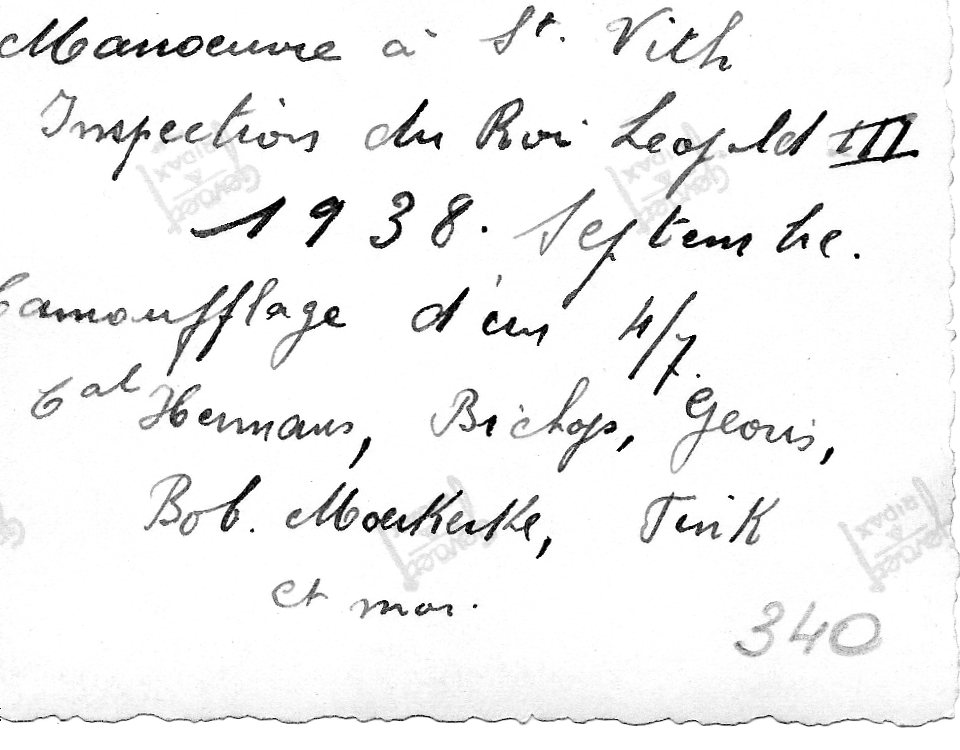 Manoeuvre à St. Vith
Inspection du Roi Leopold III
1938. Septembre.
Camoufflage d'un 4/7.
Cal Hermans, Bichops, Georis,
Bob. Moerkerke, Tink
et moi.
340
Gevaert
RIDAX